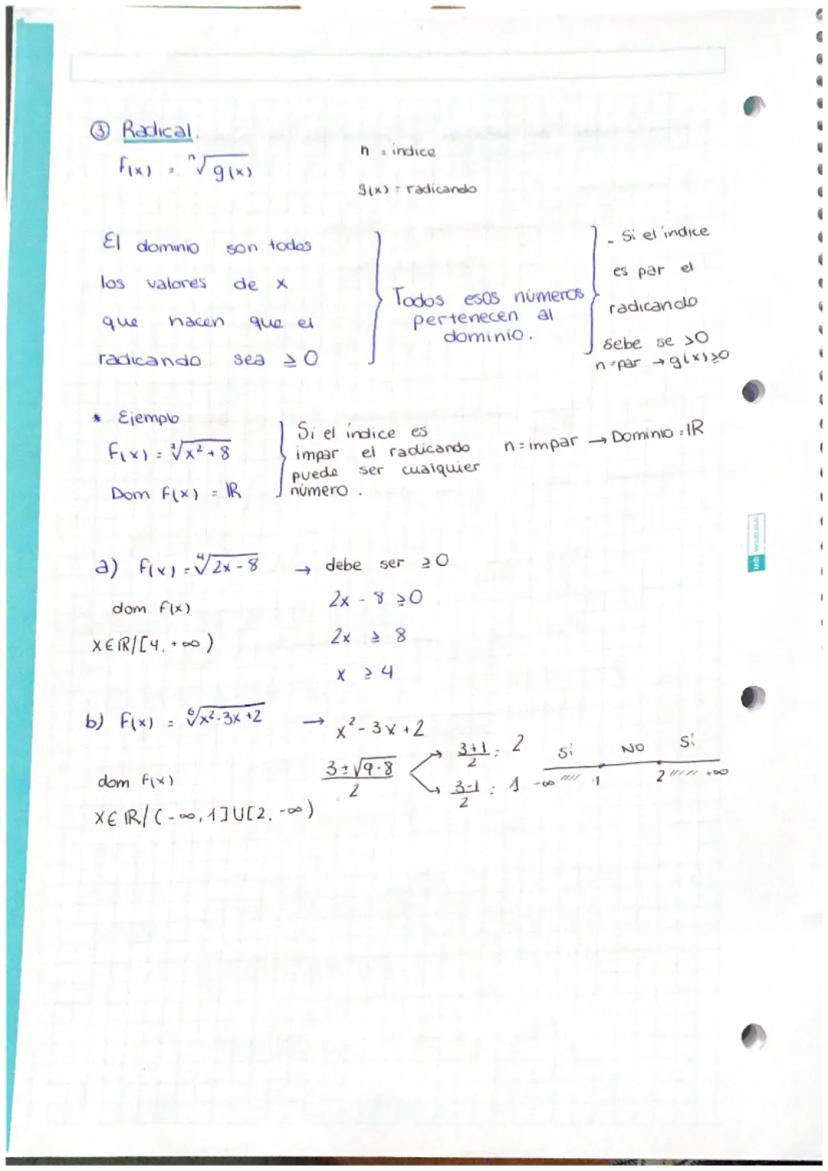 ③ Radical.
f(x) = ⁿ√g(x)
n = índice
g(x) = radicando
El dominio son todos
los valores de x
que hacen que el
radicando sea ≥ 0
Todos esos números
pertenecen al
dominio.
- Si el índice
es par el
radicando
debe se >0
n=par → g(x)≥0
* Ejemplo
f(x) = ³√x² + 8
Dom f(x) = ℝ
Si el índice es
impar el radicando
puede ser cualquier
número.
n = impar → Dominio = ℝ
a) f(x) = ⁴√2x - 8 → debe ser ≥ 0
dom f(x)
x∈ℝ/[4, +∞)
2x - 8 ≥ 0
2x ≥ 8
x ≥ 4
b) f(x) = ⁶√x² - 3x + 2 → x² - 3x + 2
3 ± √9 - 8 / 2
3+1 / 2 = 2
3-1 / 2 = 1
Sí NO Sí
-∞ //// 1 2 ///// +∞
dom f(x)
x∈ℝ/(-∞, 1]U[2, -∞)